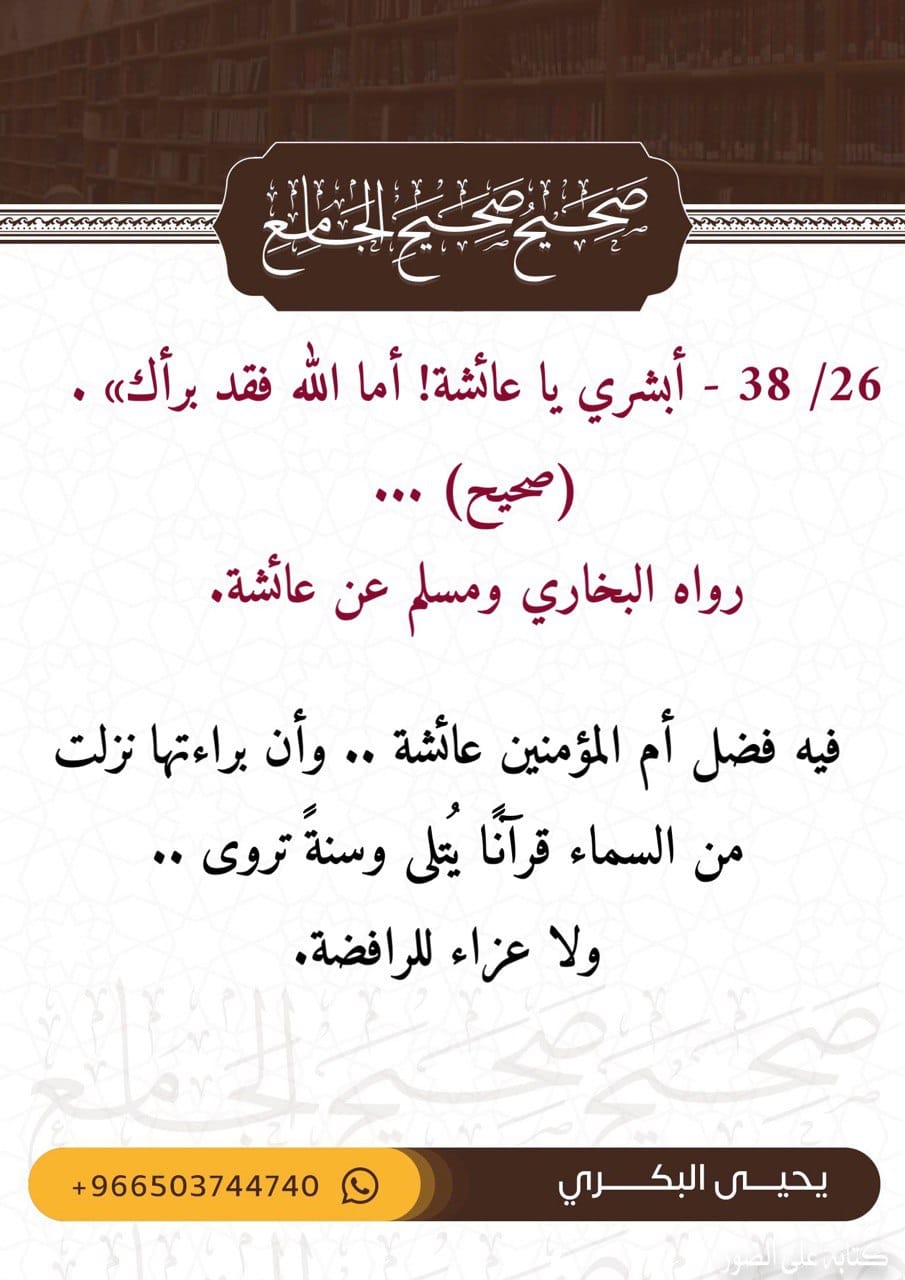 صَحِيحُ صَحِيحِ الجَامِعِ
26/ 38 - أبشري يا عائشة! أما الله فقد برأك» .
(صحيح) ...
رواه البخاري ومسلم عن عائشة.
فيه فضل أم المؤمنين عائشة .. وأن براءتها نزلت
من السماء قرآنًا يُتلى وسنةً تروى ..
ولا عزاء للرافضة.
صحيح صحيح الجامع
يحيـــى البكـــــري
+966503744740
كتابة على الصور